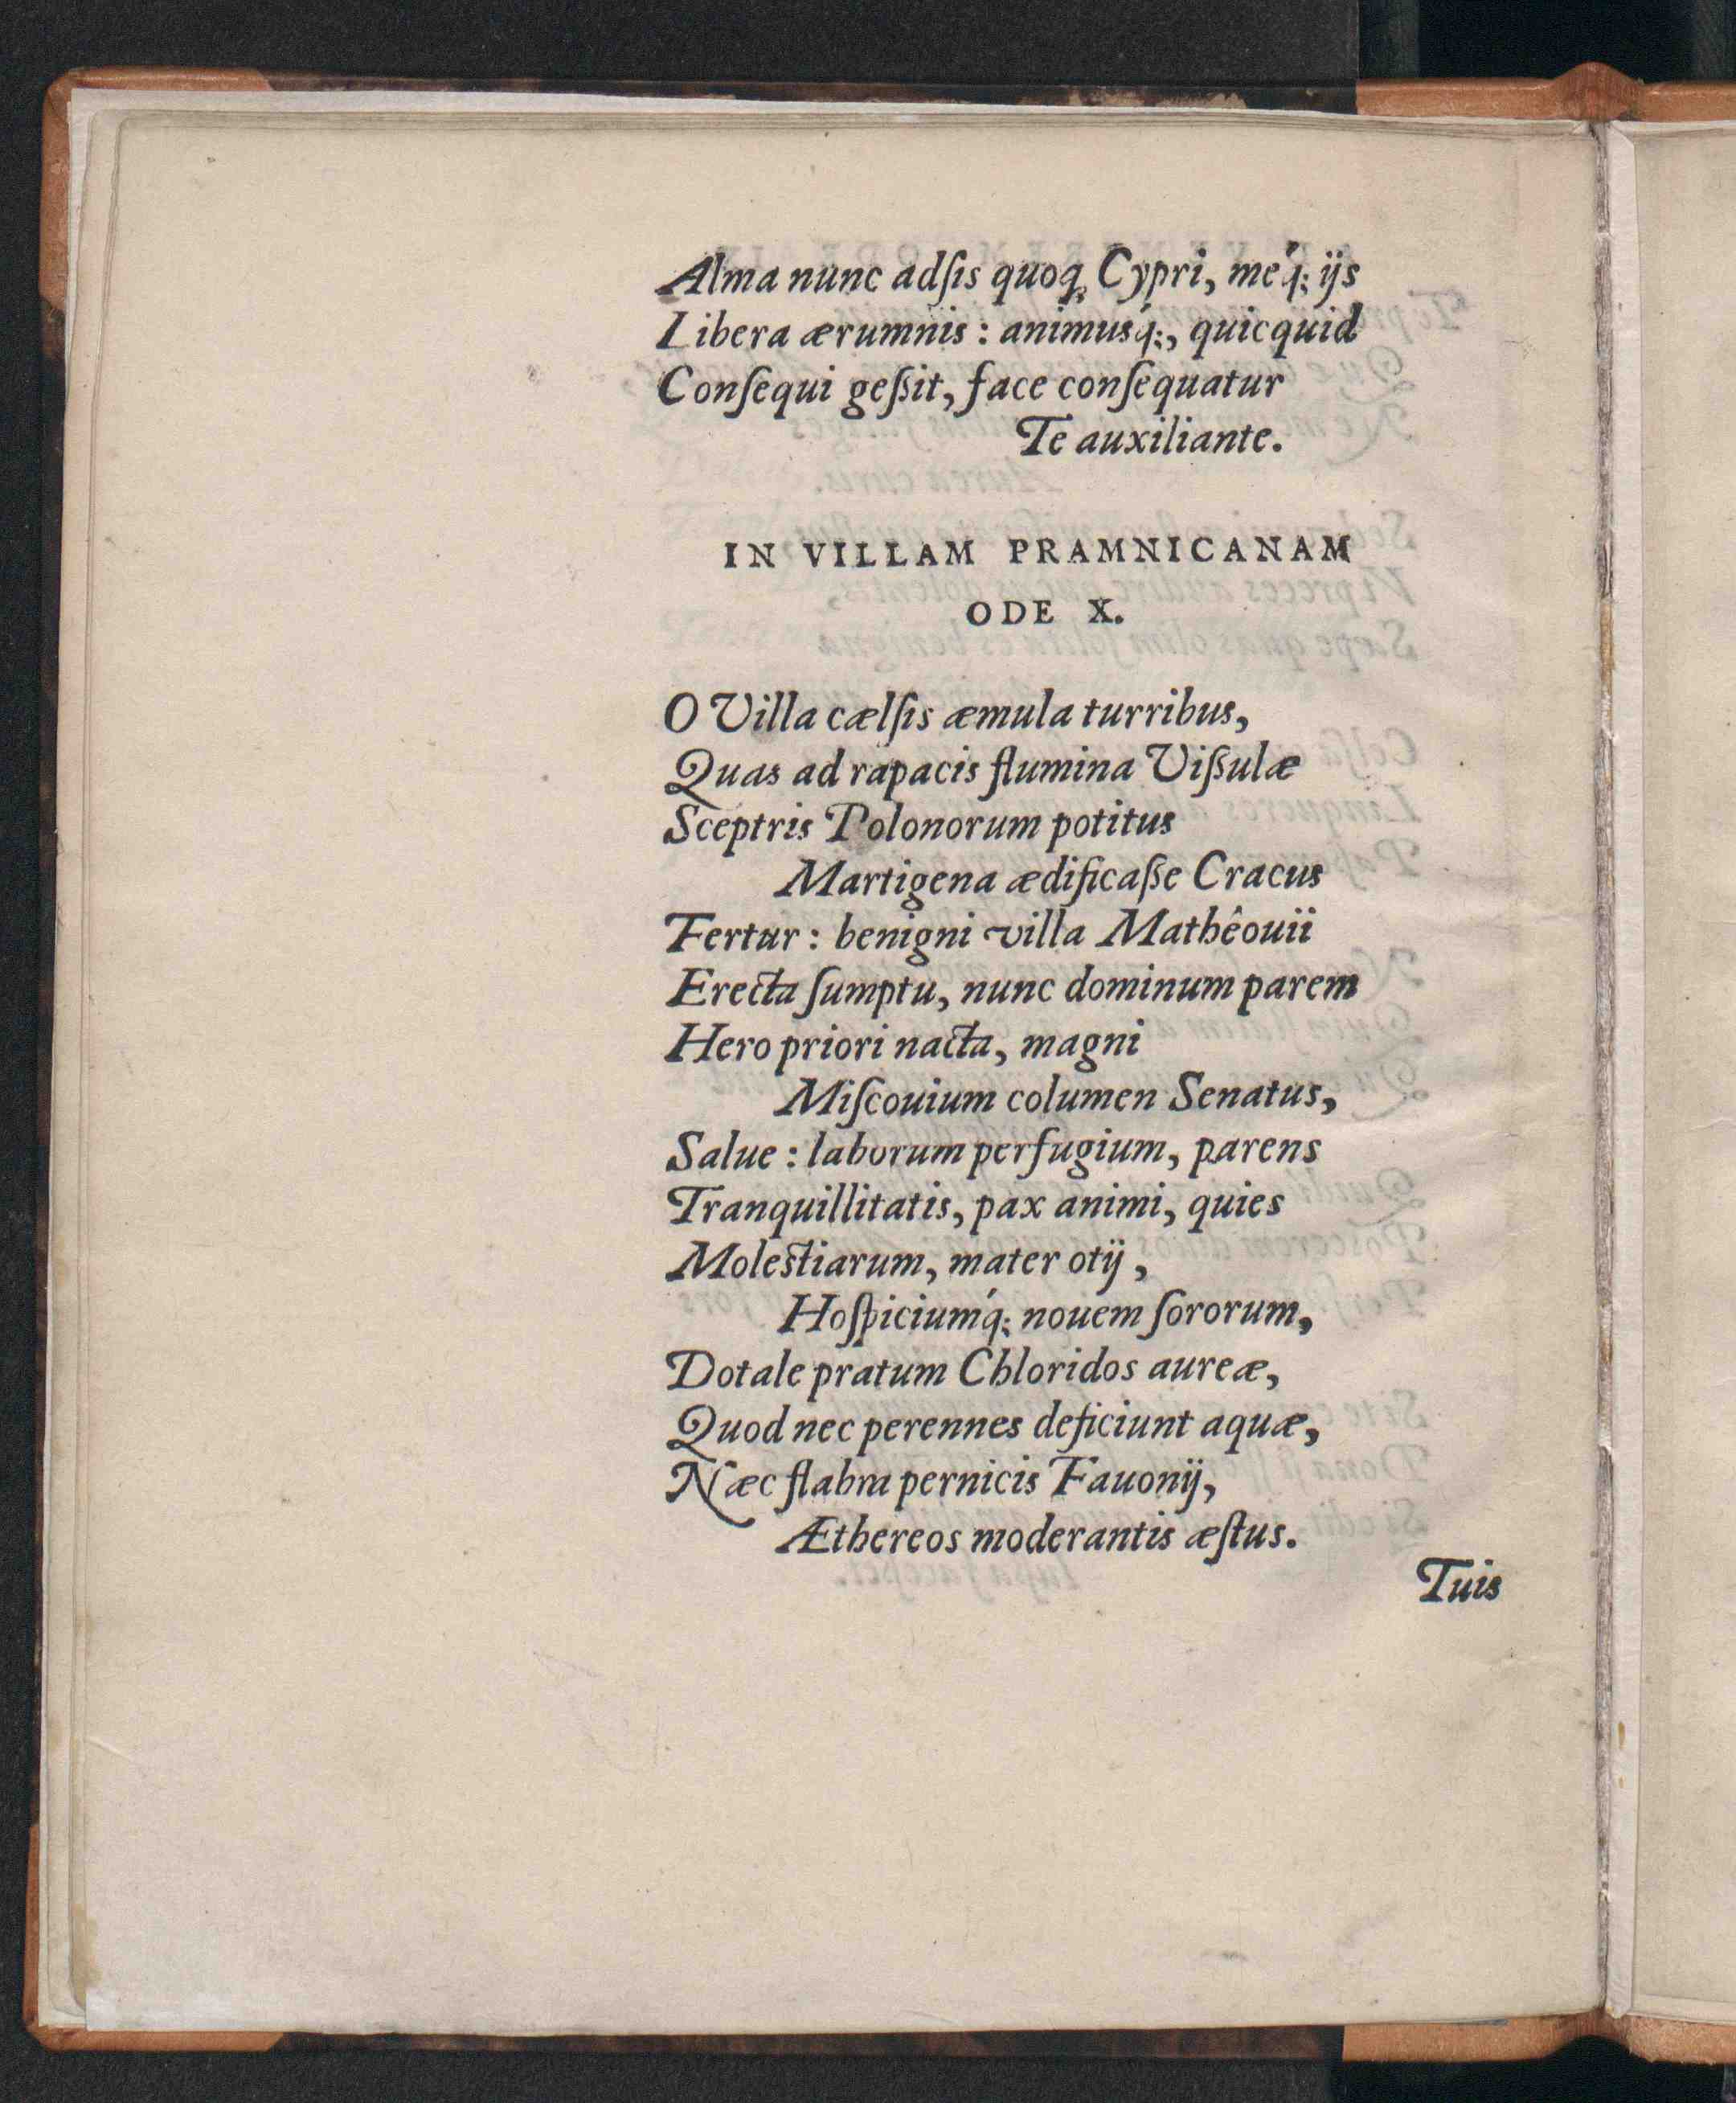 Alma nunc adſis quoq; Cypri, meq́; ijs
Libera ærumnis: animusq́;, quicquid
Conſequi geßit, face conſequatur
Te auxiliante.
IN VILLAM PRAMNICANAM
ODE X.
O Villa cælſis æmula turribus,
Quas ad rapacis flumina Vißulæ
Sceptris Polonorum potitus
Martigena ædificaße Cracus
Fertur: benigni villa Mathêouii
Erecta ſumptu, nunc dominum parem
Hero priori nacta, magni
Miſcouium columen Senatus,
Salue: laborum perfugium, parens
Tranquillitatis, pax animi, quies
Molestiarum, mater otij,
Hoſpiciumq́; nouem ſororum,
Dotale pratum Chloridos aureæ,
Quod nec perennes deficiunt aquæ,
Næc flabra pernicis Fauonij,
Æthereos moderantis æſtus.
Tuis